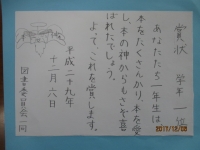 賞状 学年一位
あなたたち一年生は
本をたくさんかり、本を愛
し、本の神からもさぞ喜
ばれたでしょう。
よってこれを賞します。
平成二十九年
十二月六日
図書委員会一同
2017/12/05